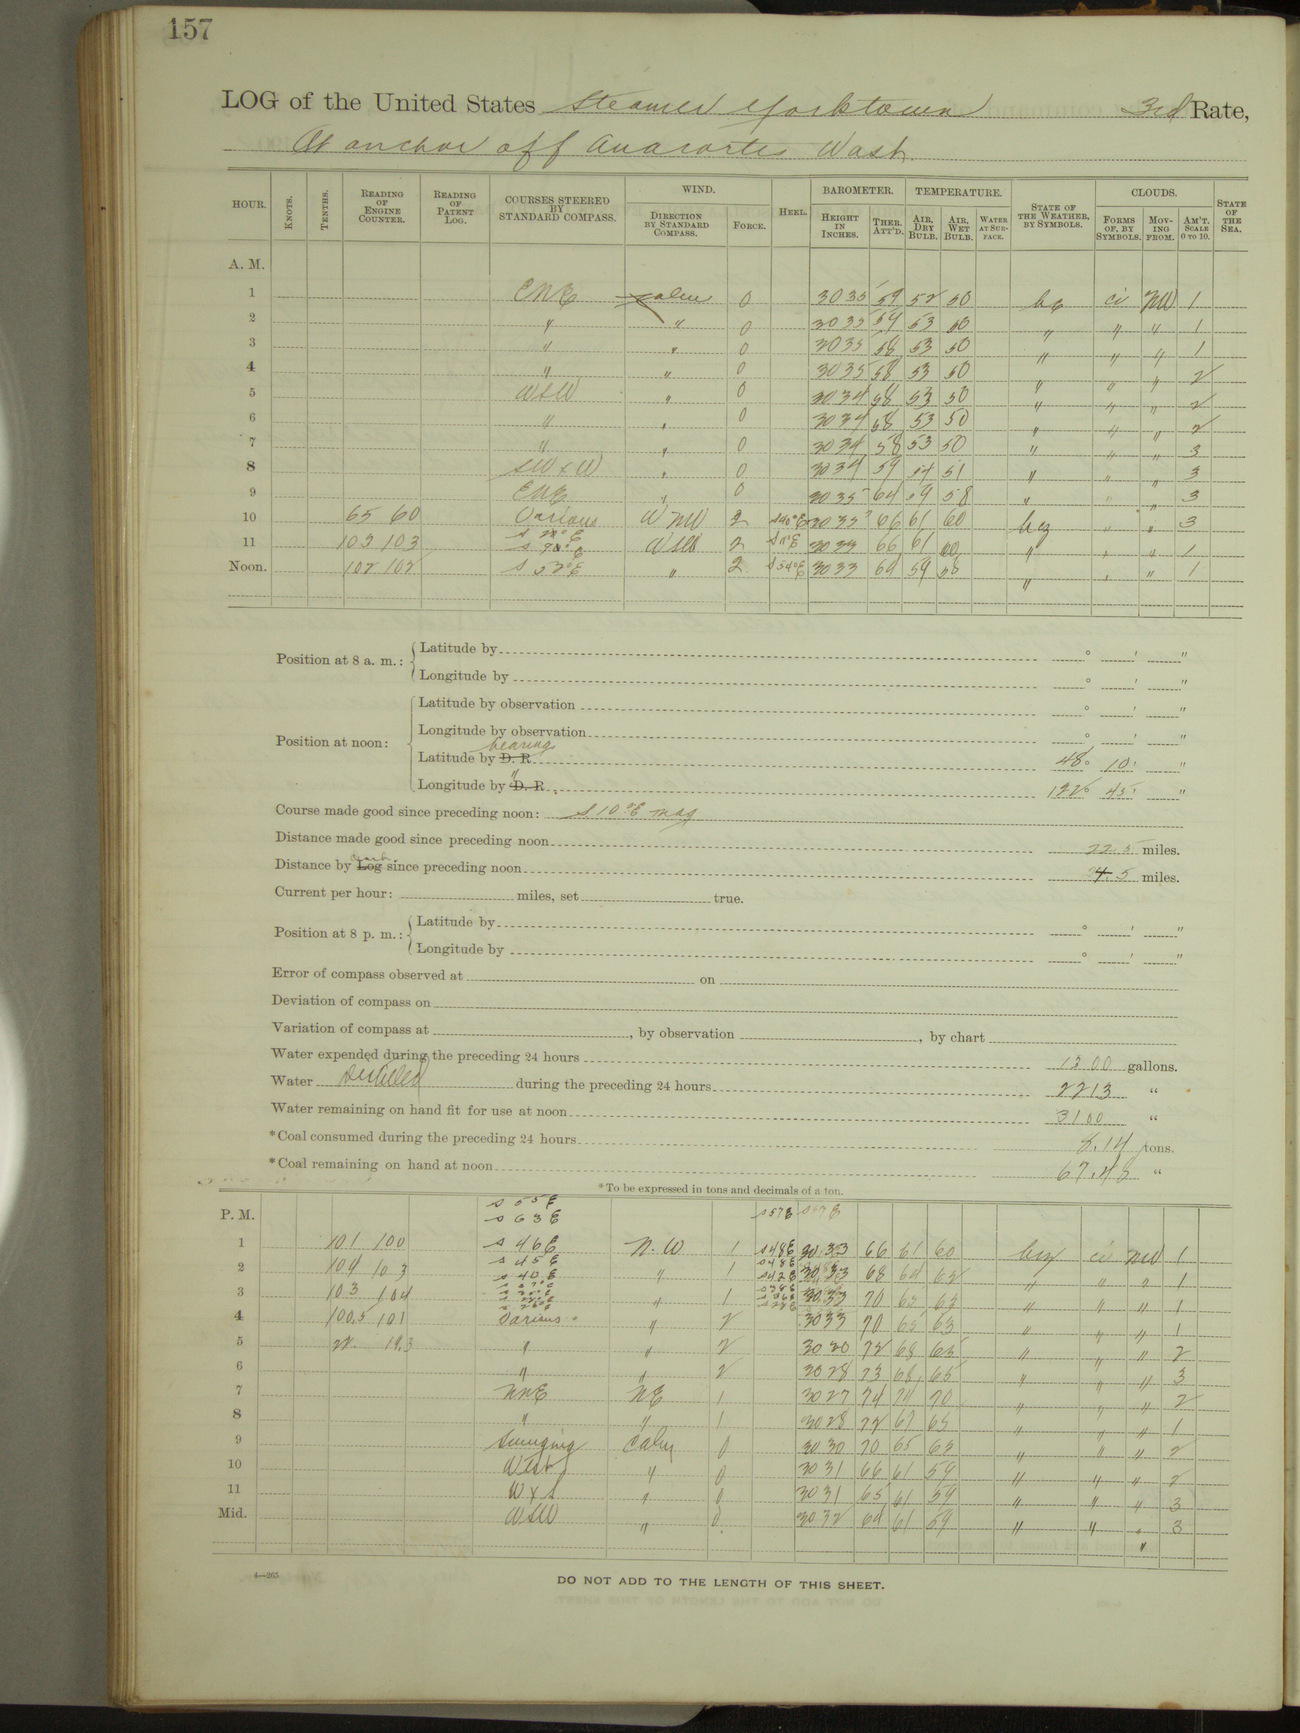 157
LOG of the United States Steamer Yorktown 3rd Rate,
At anchor off Anacortes Wash.
HOUR. KNOTS. TENTHS. READING OF ENGINE COUNTER. READING OF PATENT LOG. COURSES STEERED BY STANDARD COMPASS. WIND. DIRECTION BY STANDARD COMPASS. FORCE. HEEL. BAROMETER. HEIGHT IN INCHES. THER. ATT'D. TEMPERATURE. AIR, DRY BULB. AIR, WET BULB. WATER AT SURFACE. STATE OF THE WEATHER, BY SYMBOLS. CLOUDS. FORMS OF, BY SYMBOLS. MOVING FROM. AM'T. SCALE 0 TO 10. STATE OF THE SEA.
A. M.
1 ENE calm 0 30 35 59 52 50 bc ci NW 1
2 " " 0 30 35 59 53 50 " " " 1
3 " " 0 30 35 58 53 50 " " " 1
4 " " 0 30 35 58 53 50 " " " 2
5 WSW " 0 30 34 58 53 50 " " " 2
6 " " 0 30 34 58 53 50 " " " 2
7 " " 0 30 34 58 53 50 " " " 3
8 SW x W " 0 30 34 59 54 51 " " " 3
9 ENE " 0 30 35 64 59 58 " " " 3
10 65 60 Various W NW 2 S40°E 30 35 66 61 60 bcz " " 3
11 103 103 WSW 2 S11°E 30 33 66 61 60 " " " 1
Noon. 102 102 S 52°E " 2 S54°E 30 33 64 59 58 " " " 1
Position at 8 a. m.: Latitude by ° ' "
Longitude by ° ' "
Position at noon: Latitude by observation ° ' "
Longitude by observation ° ' "
bearing
Latitude by D. R. 48° 10' "
"
Longitude by D. R. 122° 45' "
Course made good since preceding noon: S 10°E mag
Distance made good since preceding noon 22.5 miles.
Distance by Log since preceding noon 4.5 miles.
Current per hour: miles, set true.
Position at 8 p. m.: Latitude by ° ' "
Longitude by ° ' "
Error of compass observed at on
Deviation of compass on
Variation of compass at , by observation , by chart
Water expended during the preceding 24 hours 1200 gallons.
Water distilled during the preceding 24 hours 2213 "
Water remaining on hand fit for use at noon 3100 "
*Coal consumed during the preceding 24 hours 8.14 tons.
*Coal remaining on hand at noon 67.43 "
*To be expressed in tons and decimals of a ton.
S 55 E
P. M. S 63 E S57E S57E
1 101 100 S 46 E N. W 1 S48E 30.33 66 61 60 bcz ci NW 1
S 45 E S48E
2 104 103 S 40 E " 1 S42E 30.33 68 64 62 " " " 1
3 103 104 " 1 30.33 70 65 63 " " " 1
4 100.5 101 Various " 2 30 33 70 65 63 " " " 1
5 22. 19.3 " " 2 30 30 72 68 65 " " " 2
6 " " 2 30 28 73 68 65 " " " 3
7 NNE NE 1 30 27 74 74 70 " " " 2
8 " " 1 30 28 72 67 65 " " " 1
9 Swinging Calm 0 30 30 70 65 63 " " " 2
10 West " 0 30 31 66 61 59 " " " 2
11 W x S " 0 30 31 65 61 59 " " " 3
Mid. WSW " 0 30 32 64 61 59 " " " 3
"
4—265
DO NOT ADD TO THE LENGTH OF THIS SHEET.